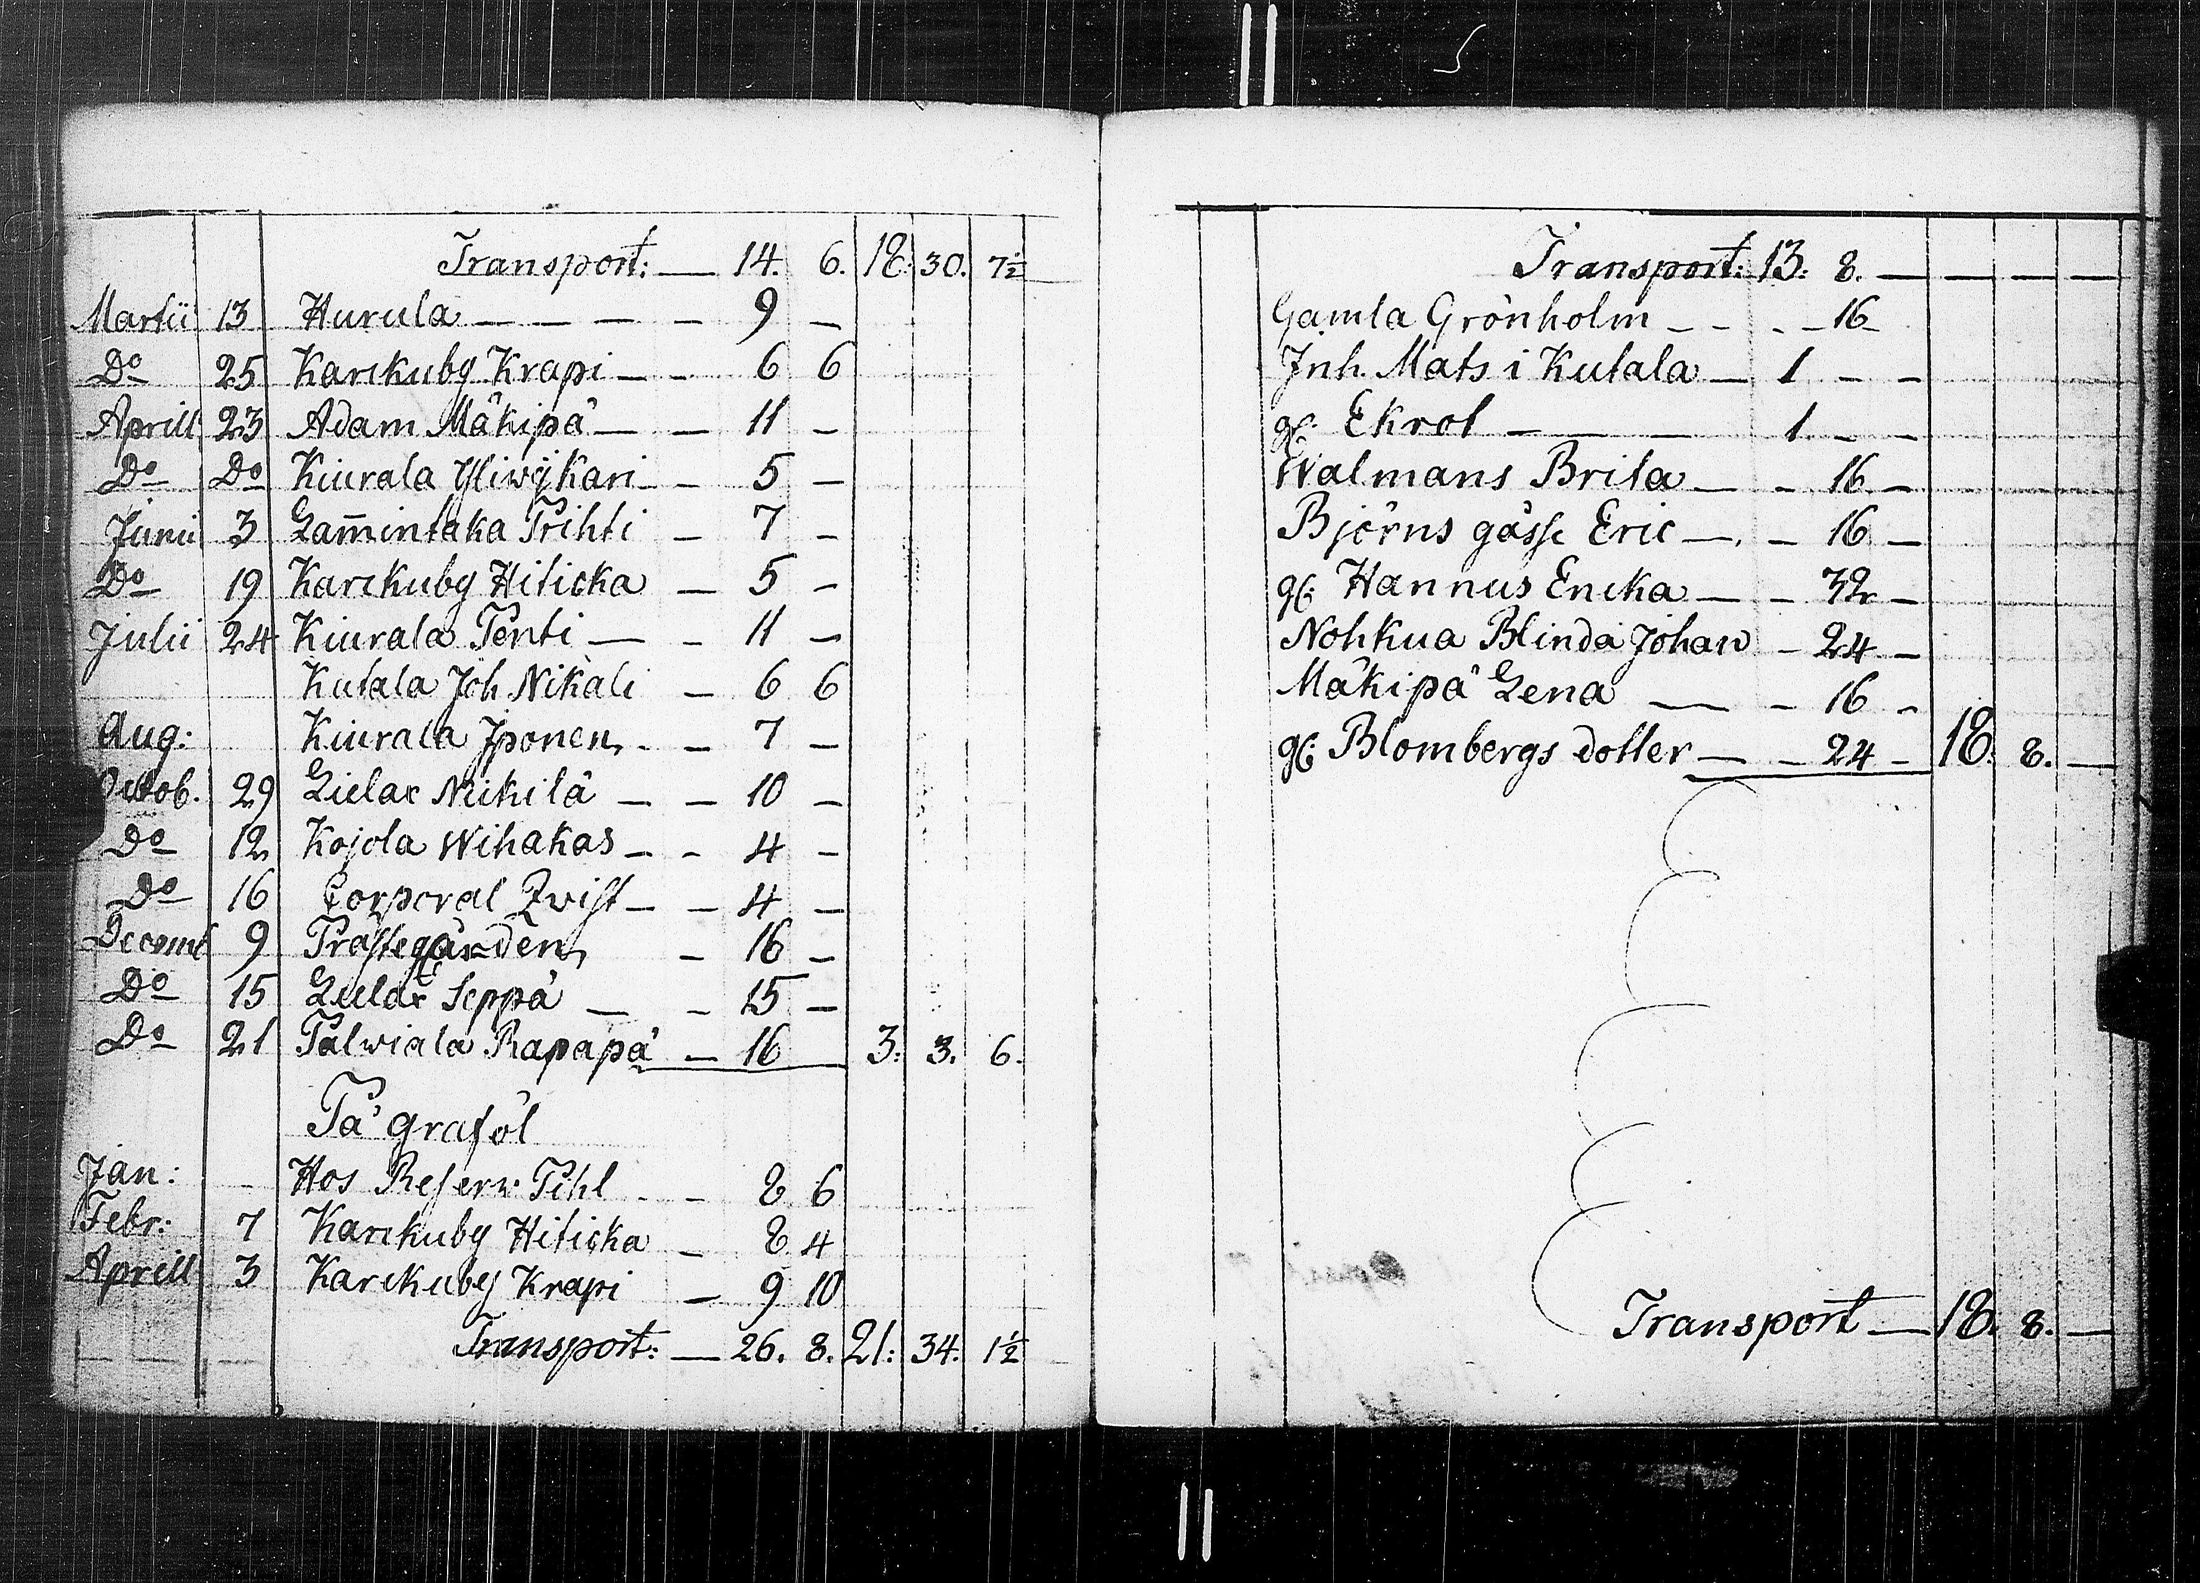 Transport: — 14. 6. 18. 30. 7½
Martii 13 Hurula — — — — 9 —
Do 25 Karckuby Krapi — — 6 6
Aprill 23 Adam Mäkipä — — 11 —
Do Do Kiurala Yliwÿkari — — 5 —
Junii 3 Lam̄intaka Prihti — 7 —
Do 19 Karckuby Hiticka — 5 —
Julii 24 Kiurala Penti — — 11 —
Kutala Joh Nikali — 6 6
Aug: Kiurala Jponen — — 7 —
Octob. 29 Lielax Neikilä — — 10 —
Do 12 Kojola Wihakas — — 4 —
Do 16 Corporal Qvist — — 4 —
Decemb 9 Prästegården — 16 —
Do 15 Lielax Seppä — — 15 —
Do 21 Talwiala Rapapä — 16 3: 3. 6.
På graföl
Jan: — Hos Reserw Pihl — — 8 6
Febr: 7 Karckuby Hiticka — 8 4
Aprill 3 Karckuby Krapi — 9 10
Transport: — 26. 8. 21: 34. 1½
Transport: 13: 8. — — — —
Gamla Grönholm — — — — 16 —
Jnh. Mats i Kutala — 1 — —
gl: Ekrot — — — 1 — —
Walmans Brita — — 16 —
Björns gåsse Eric — — 16 —
gl: Hannus Encka — — 32 —
Nohkua Blinda Johan — 24 —
Mäkipä Lena — — 16 —
gl: Blombergs dotter — — 24 — 18. 8. —
Transport — 18. 8. —